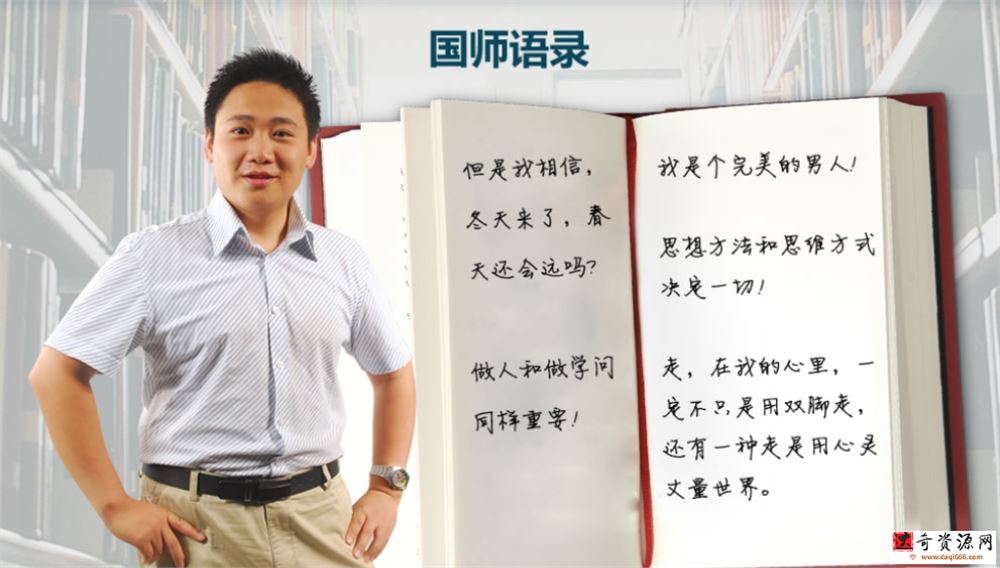 国师语录
但是我相信，
冬天来了，春
天还会远吗？
做人和做学问
同样重要！
我是个完美的男人！
思想方法和思维方式
决定一切！
走，在我的心里，一
定不只是用双脚走，
还有一种走是用心灵
丈量世界。
奇资源网
www.daqi666.com